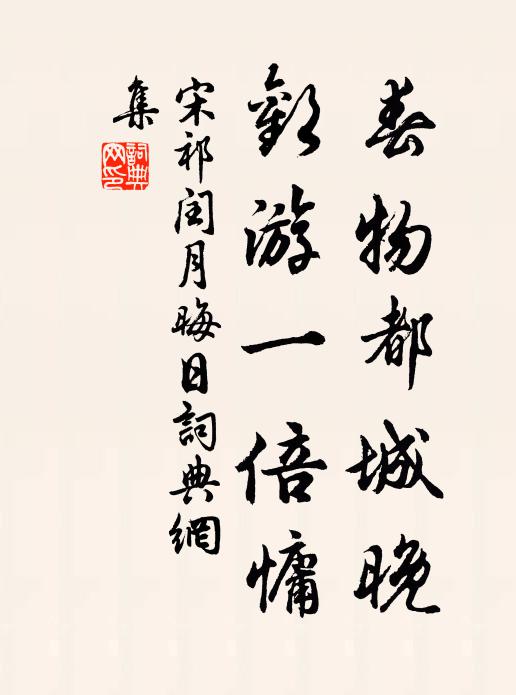 春物都城晚
歡游一倍慵
宋祁閏月晦日詞典網
集
詞典
网印